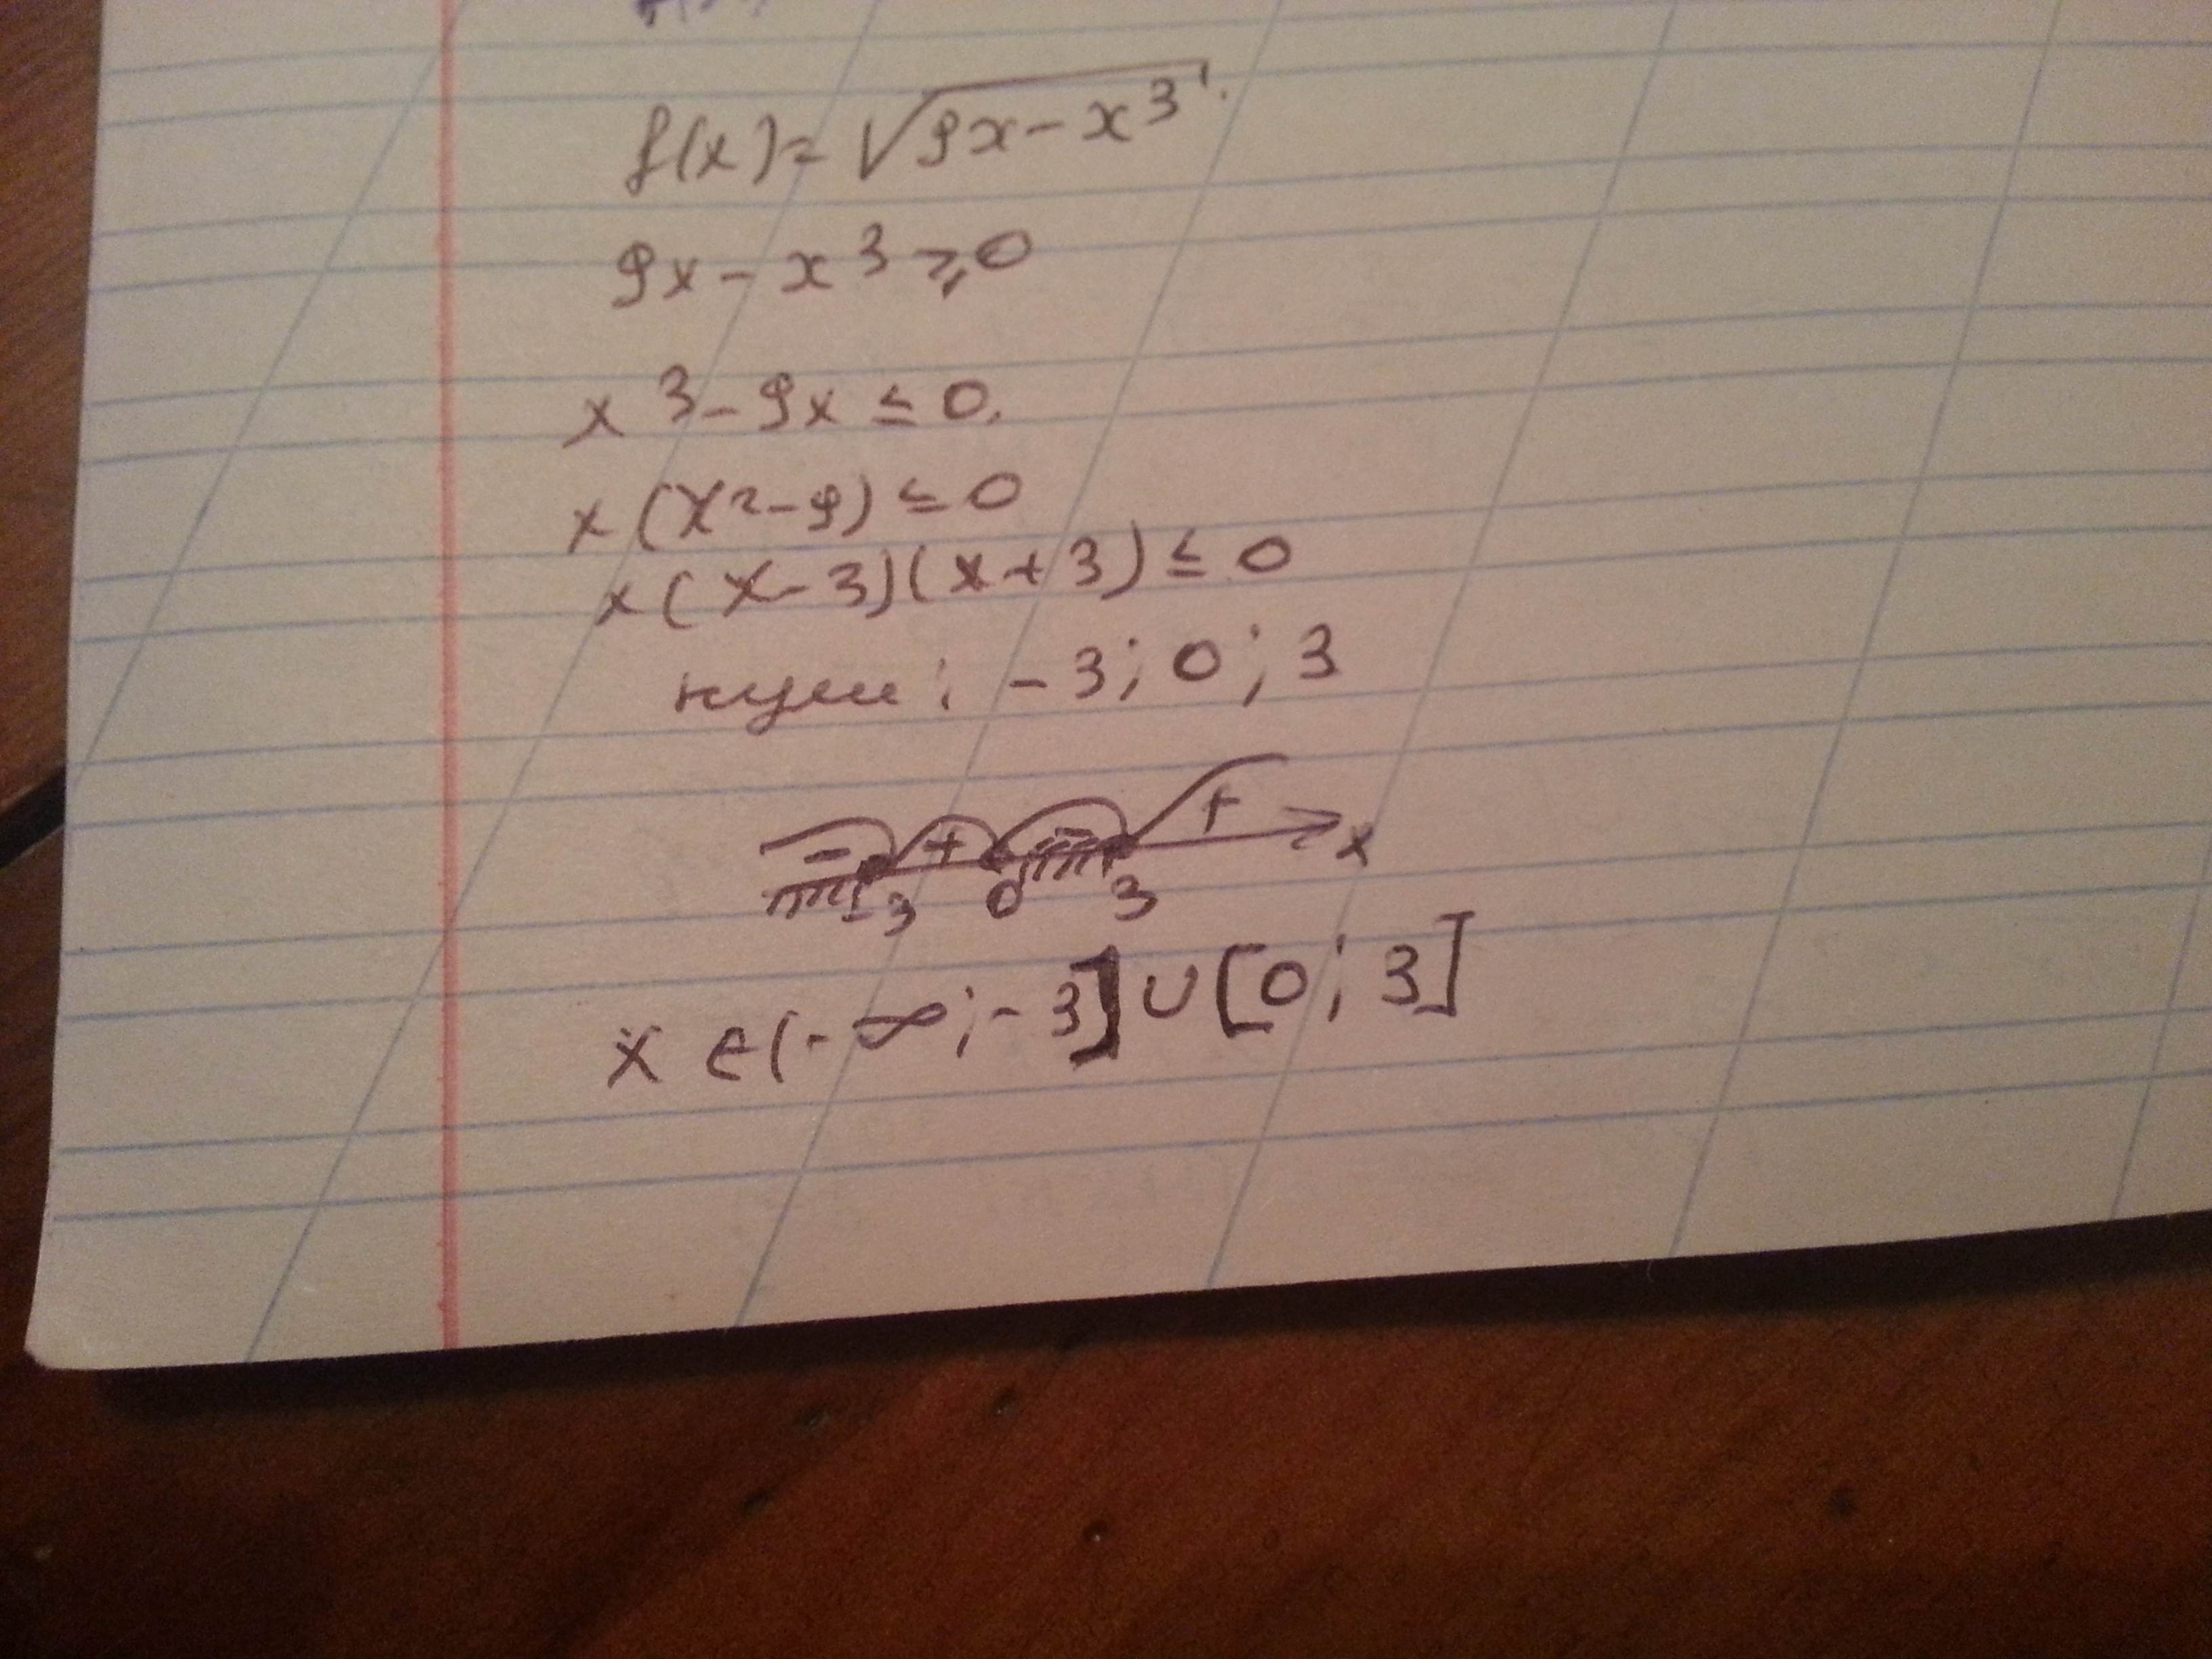 f(x) = √(9x - x³).
9x - x³ ⩾ 0
x³ - 9x ≤ 0.
x(x² - 9) ≤ 0
x(x - 3)(x + 3) ≤ 0
нули: -3; 0; 3
- + - + x
-3 0 3
x ∈ (-∞; -3] ∪ [0; 3]